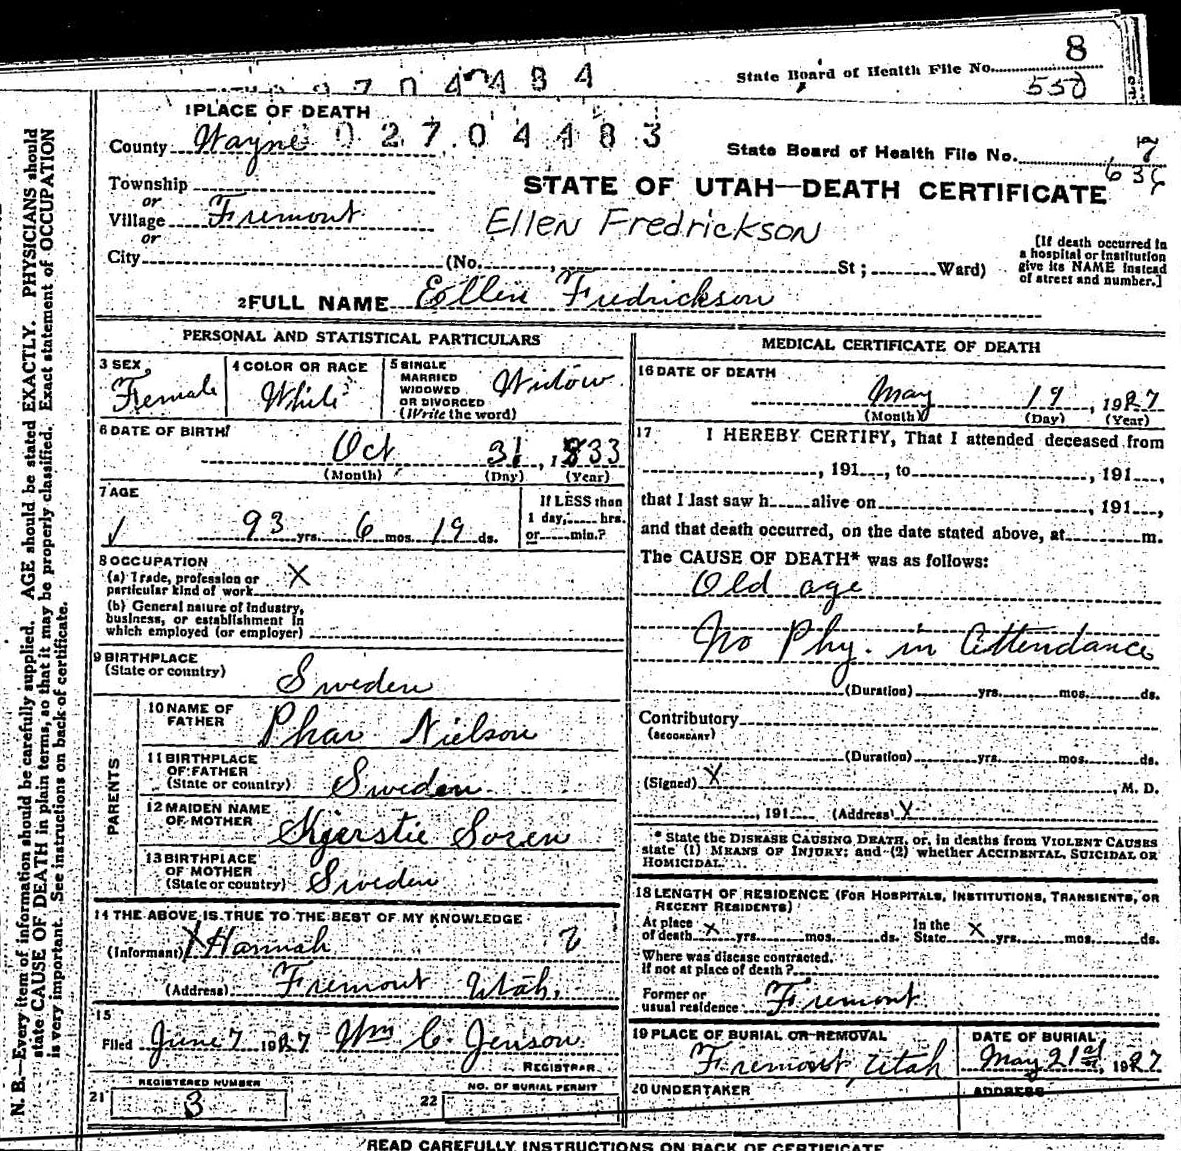 State Board of Health File No. 8
550
1 PLACE OF DEATH
02704483
County Wayne
State Board of Health File No. 7
Township
STATE OF UTAH—DEATH CERTIFICATE
or
Village Fremont
Ellen Fredrickson
or
City (No. , St ; Ward)
[If death occurred in
a hospital or institution
give its NAME instead
of street and number.]
2 FULL NAME Ellen Fredrickson
PERSONAL AND STATISTICAL PARTICULARS
3 SEX Female
4 COLOR OR RACE White
5 SINGLE
MARRIED
WIDOWED
OR DIVORCED
(Write the word) Widow
6 DATE OF BIRTH
Oct 31, 1833
(Month) (Day) (Year)
7 AGE
93 yrs. 6 mos. 19 ds.
If LESS than
1 day, hrs.
or min.?
8 OCCUPATION
(a) Trade, profession or
particular kind of work X
(b) General nature of industry,
business, or establishment in
which employed (or employer)
9 BIRTHPLACE
(State or country) Sweden
PARENTS
10 NAME OF
FATHER Phar Nielson
11 BIRTHPLACE
OF FATHER
(State or country) Sweden
12 MAIDEN NAME
OF MOTHER Kjerstie Soren
13 BIRTHPLACE
OF MOTHER
(State or country) Sweden
14 THE ABOVE IS TRUE TO THE BEST OF MY KNOWLEDGE
(Informant) X Hannah ?
(Address) Fremont Utah.
15
Filed June 7 1927 Wm C. Jenson.
REGISTRAR
REGISTERED NUMBER
21 3
NO. OF BURIAL PERMIT
22
MEDICAL CERTIFICATE OF DEATH
16 DATE OF DEATH
May 19, 1927
(Month) (Day) (Year)
17 I HEREBY CERTIFY, That I attended deceased from
, 191 , to , 191 ,
that I last saw h alive on , 191 ,
and that death occurred, on the date stated above, at m.
The CAUSE OF DEATH* was as follows:
Old age
No Phy. in Attendance
(Duration) yrs. mos. ds.
Contributory
(SECONDARY)
(Duration) yrs. mos. ds.
(Signed) X , M. D.
, 191 (Address) X
* State the DISEASE CAUSING DEATH, or, in deaths from VIOLENT CAUSES
state (1) MEANS OF INJURY; and (2) whether ACCIDENTAL, SUICIDAL OR
HOMICIDAL.
18 LENGTH OF RESIDENCE (FOR HOSPITALS, INSTITUTIONS, TRANSIENTS, OR
RECENT RESIDENTS)
At place
of death X yrs. mos. ds.
In the
State X yrs. mos. ds.
Where was disease contracted,
if not at place of death?
Former or
usual residence Fremont
19 PLACE OF BURIAL OR REMOVAL
Fremont, Utah
DATE OF BURIAL
May 21st, 1927
20 UNDERTAKER
ADDRESS
READ CAREFULLY INSTRUCTIONS ON BACK OF CERTIFICATE
N. B.—Every item of information should be carefully supplied. AGE should be stated EXACTLY. PHYSICIANS should
state CAUSE OF DEATH in plain terms, so that it may be properly classified. Exact statement of OCCUPATION
is very important. See instructions on back of certificate.